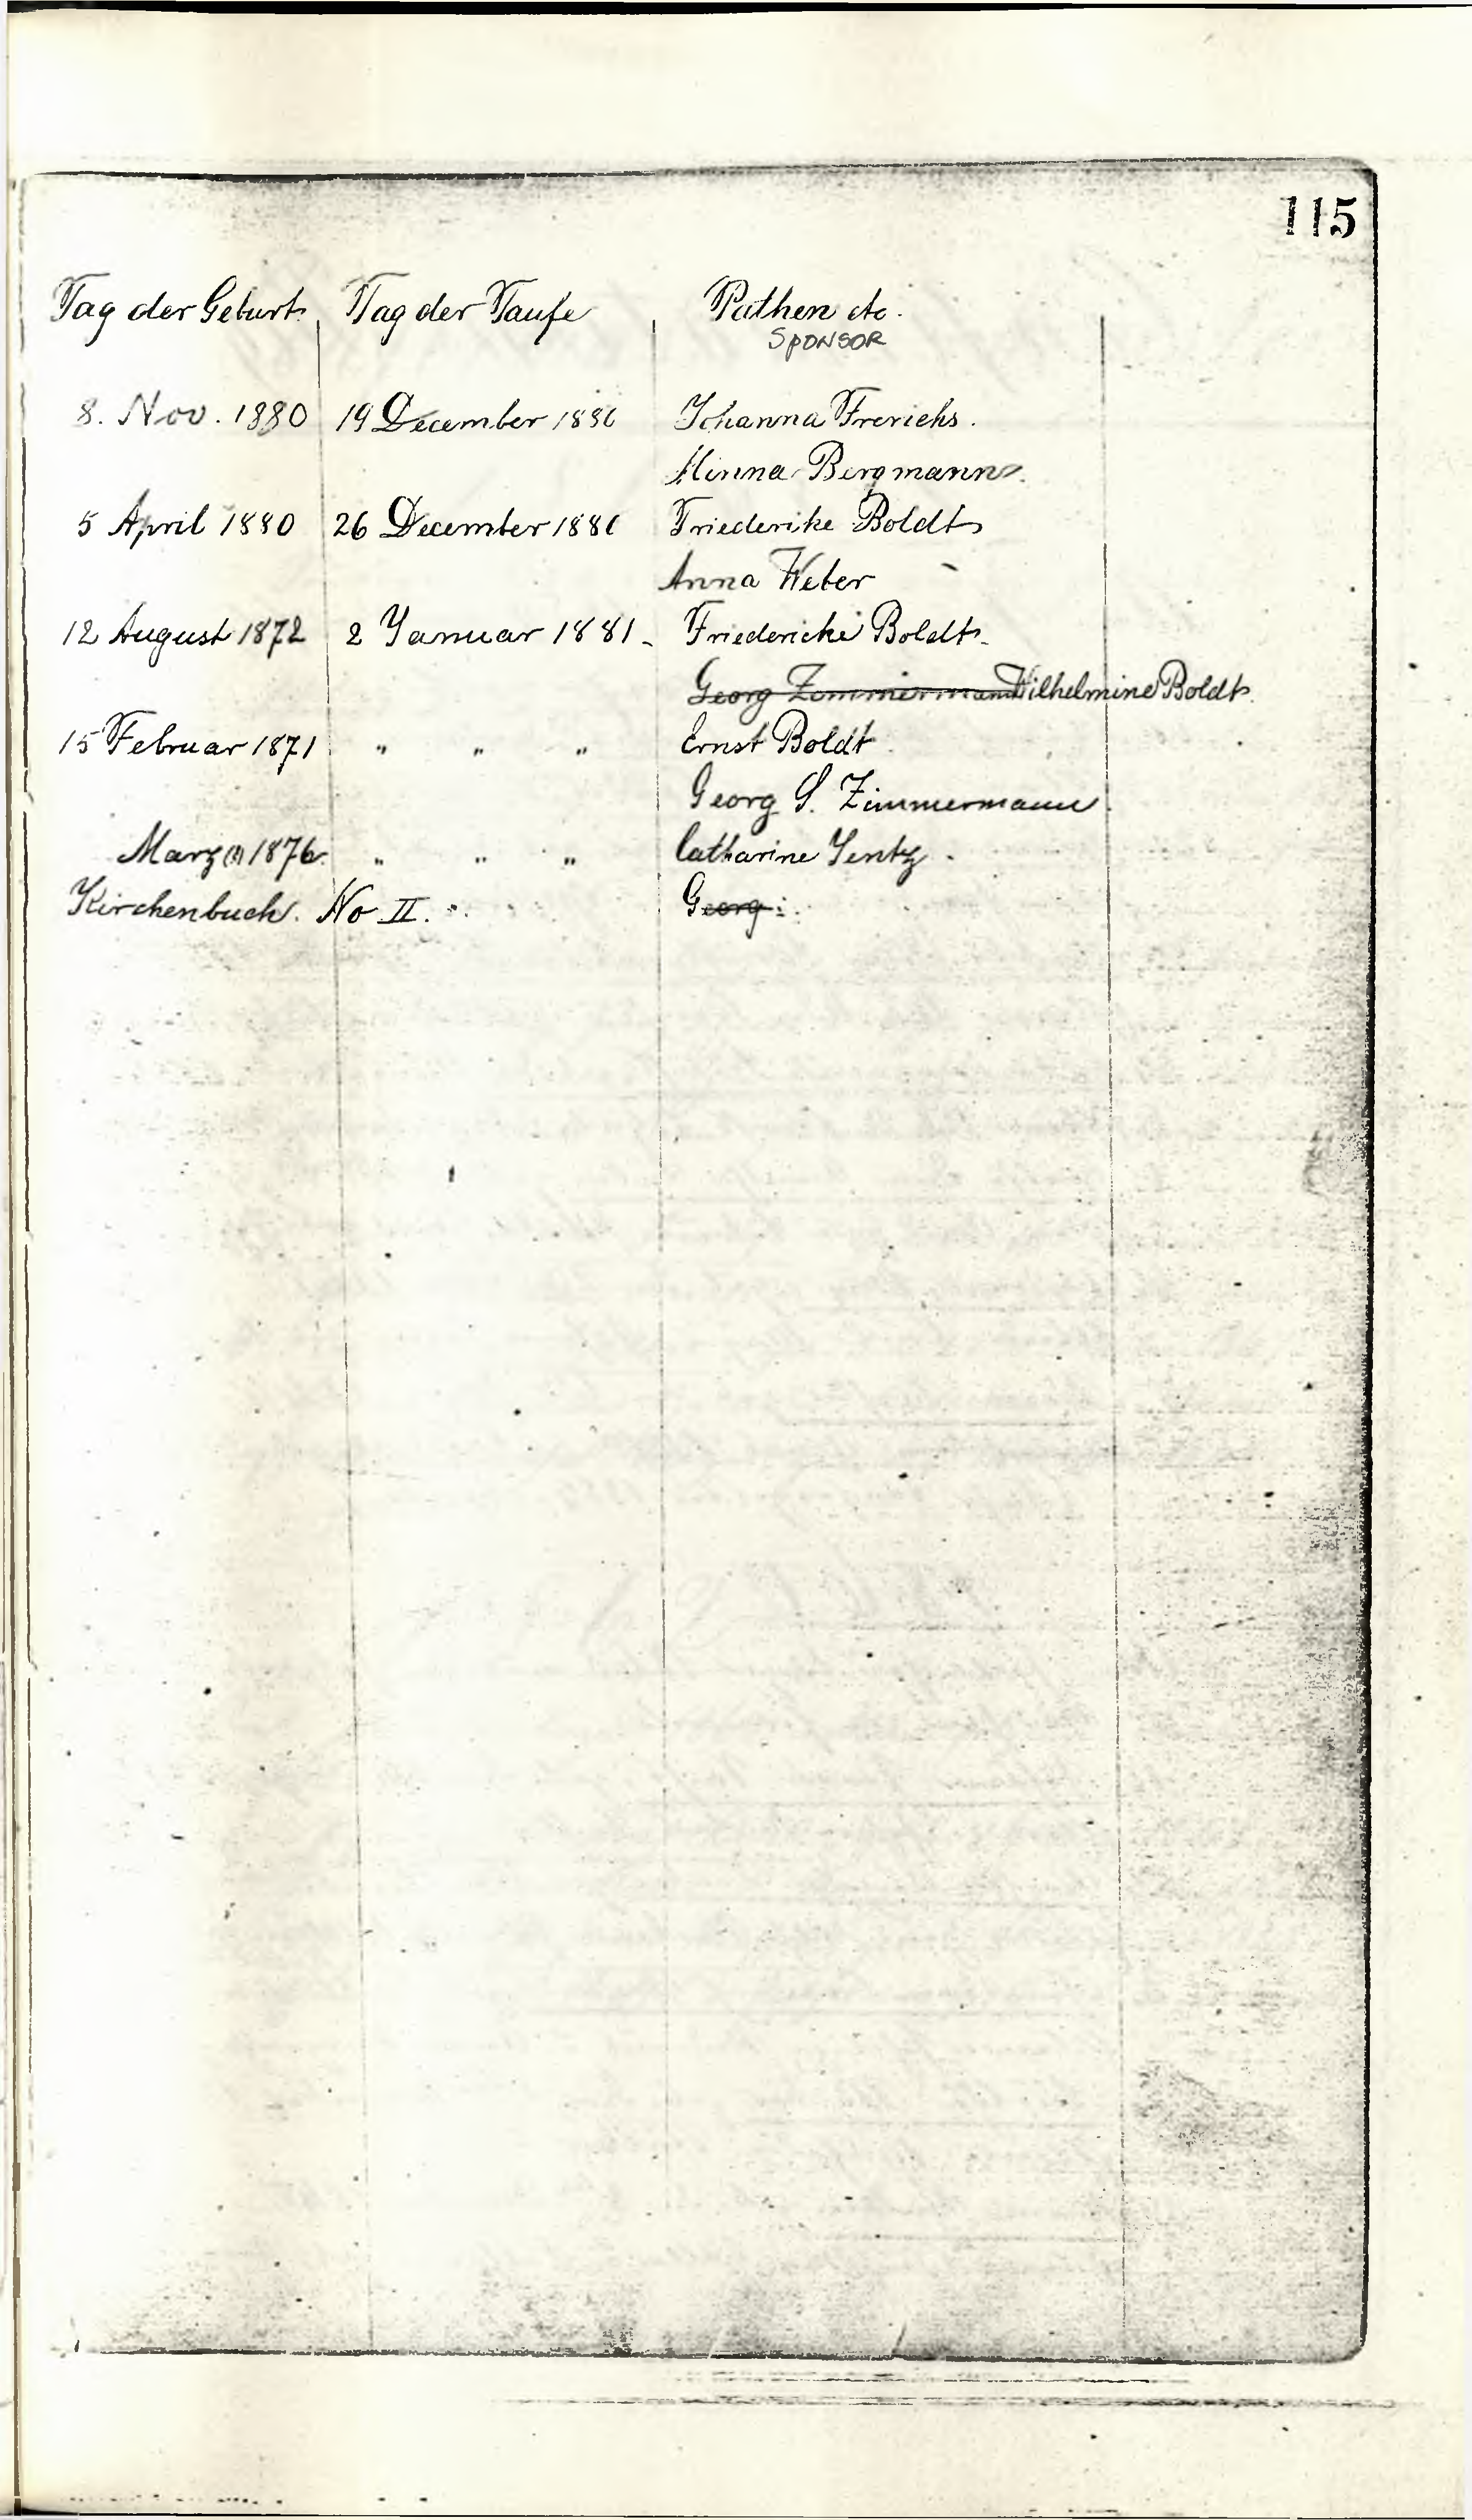 115
Tag der Geburt. Tag der Taufe Pathen etc.
SPONSOR
8. Nov. 1880 19 December 1880 Johanna Frerichs.
Minna Bergmann.
5 April 1880 26 December 1880 Friederike Boldt
Anna Weber
12 August 1872 2 Januar 1881. Friedericke Boldt.
Georg Zimmermann Wilhelmine Boldt.
15 Februar 1871 " " " Ernst Boldt
Georg S. Zimmermann.
Marz 1876. " " " Catharine Jentz.
Kirchenbuch. No II. Georg